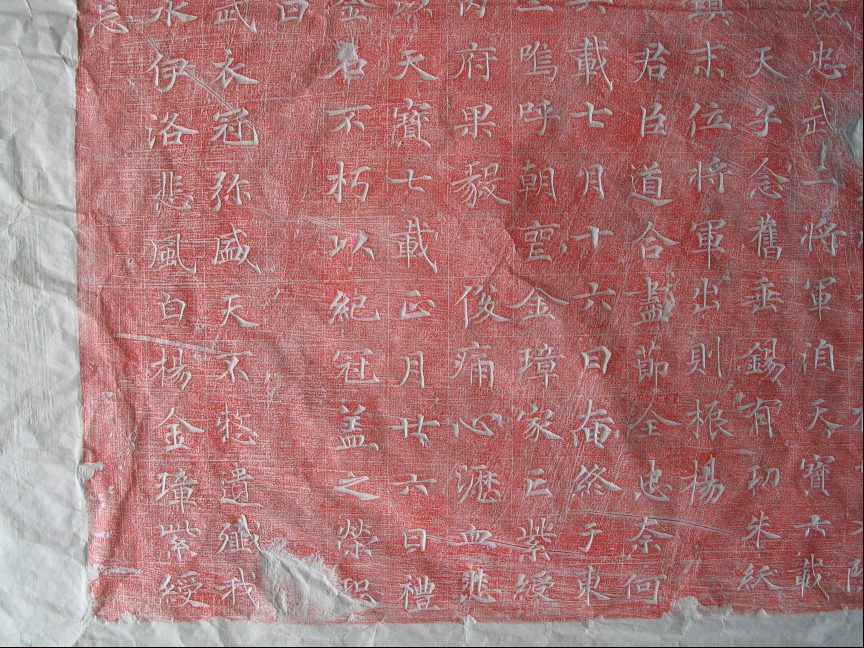 威忠武上將軍洎天寶六載
天子念舊垂錫有功朱紱
鎮末位將軍出則振楊
君臣道合盡節全忠奈何
六載七月十六日奄終于東
嗚呼朝金璋家亡紫綬
府果毅 俊痛心瀝血悲
天寶七載正月廿六日禮
金石不朽以紀冠盖之榮
曰
武衣冠弥盛天不憗遺殲我
水伊洛悲風白楊金璋紫綬
忘